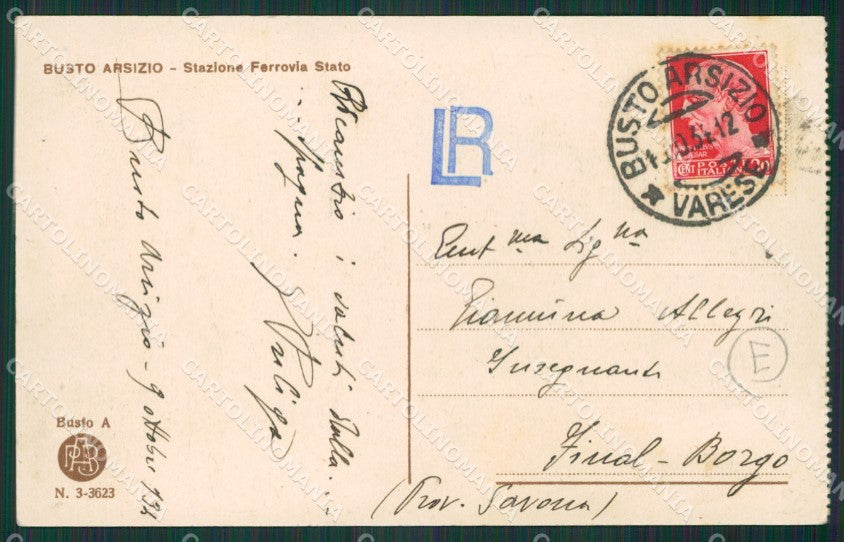 BUSTO ARSIZIO - Stazione Ferrovia Stato
Busto Arsizio - 9 ottobre 934
Ricambio i saluti dalla...
... Spagna.
LR
BUSTO ARSIZIO
12
VARESE
CENT 20
POSTE
ITALIANE
Gent ma Sig na
Giannina Allegri
Insegnante
E
Final-Borgo
(Prov. Savona)
Busto A
N. 3-3623
CARTOLINOMANIA